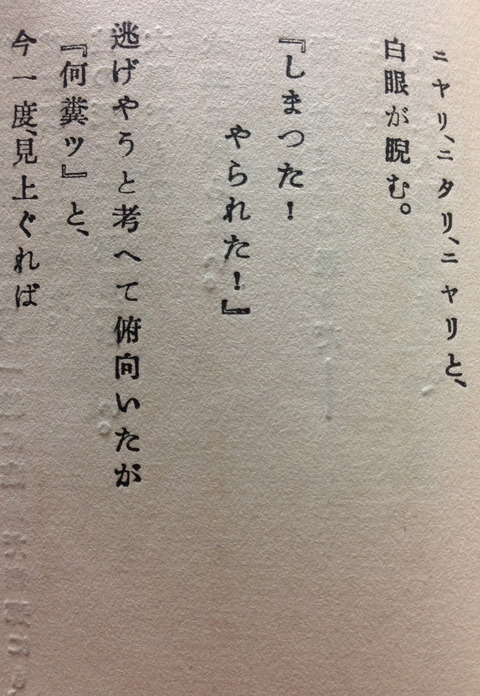 ニヤリ、ニタリ、ニヤリと、
白眼が睨む。
『しまつた！
やられた！』
逃げやうと考へて俯向いたが
『何糞ツ』と、
今一度、見上ぐれば